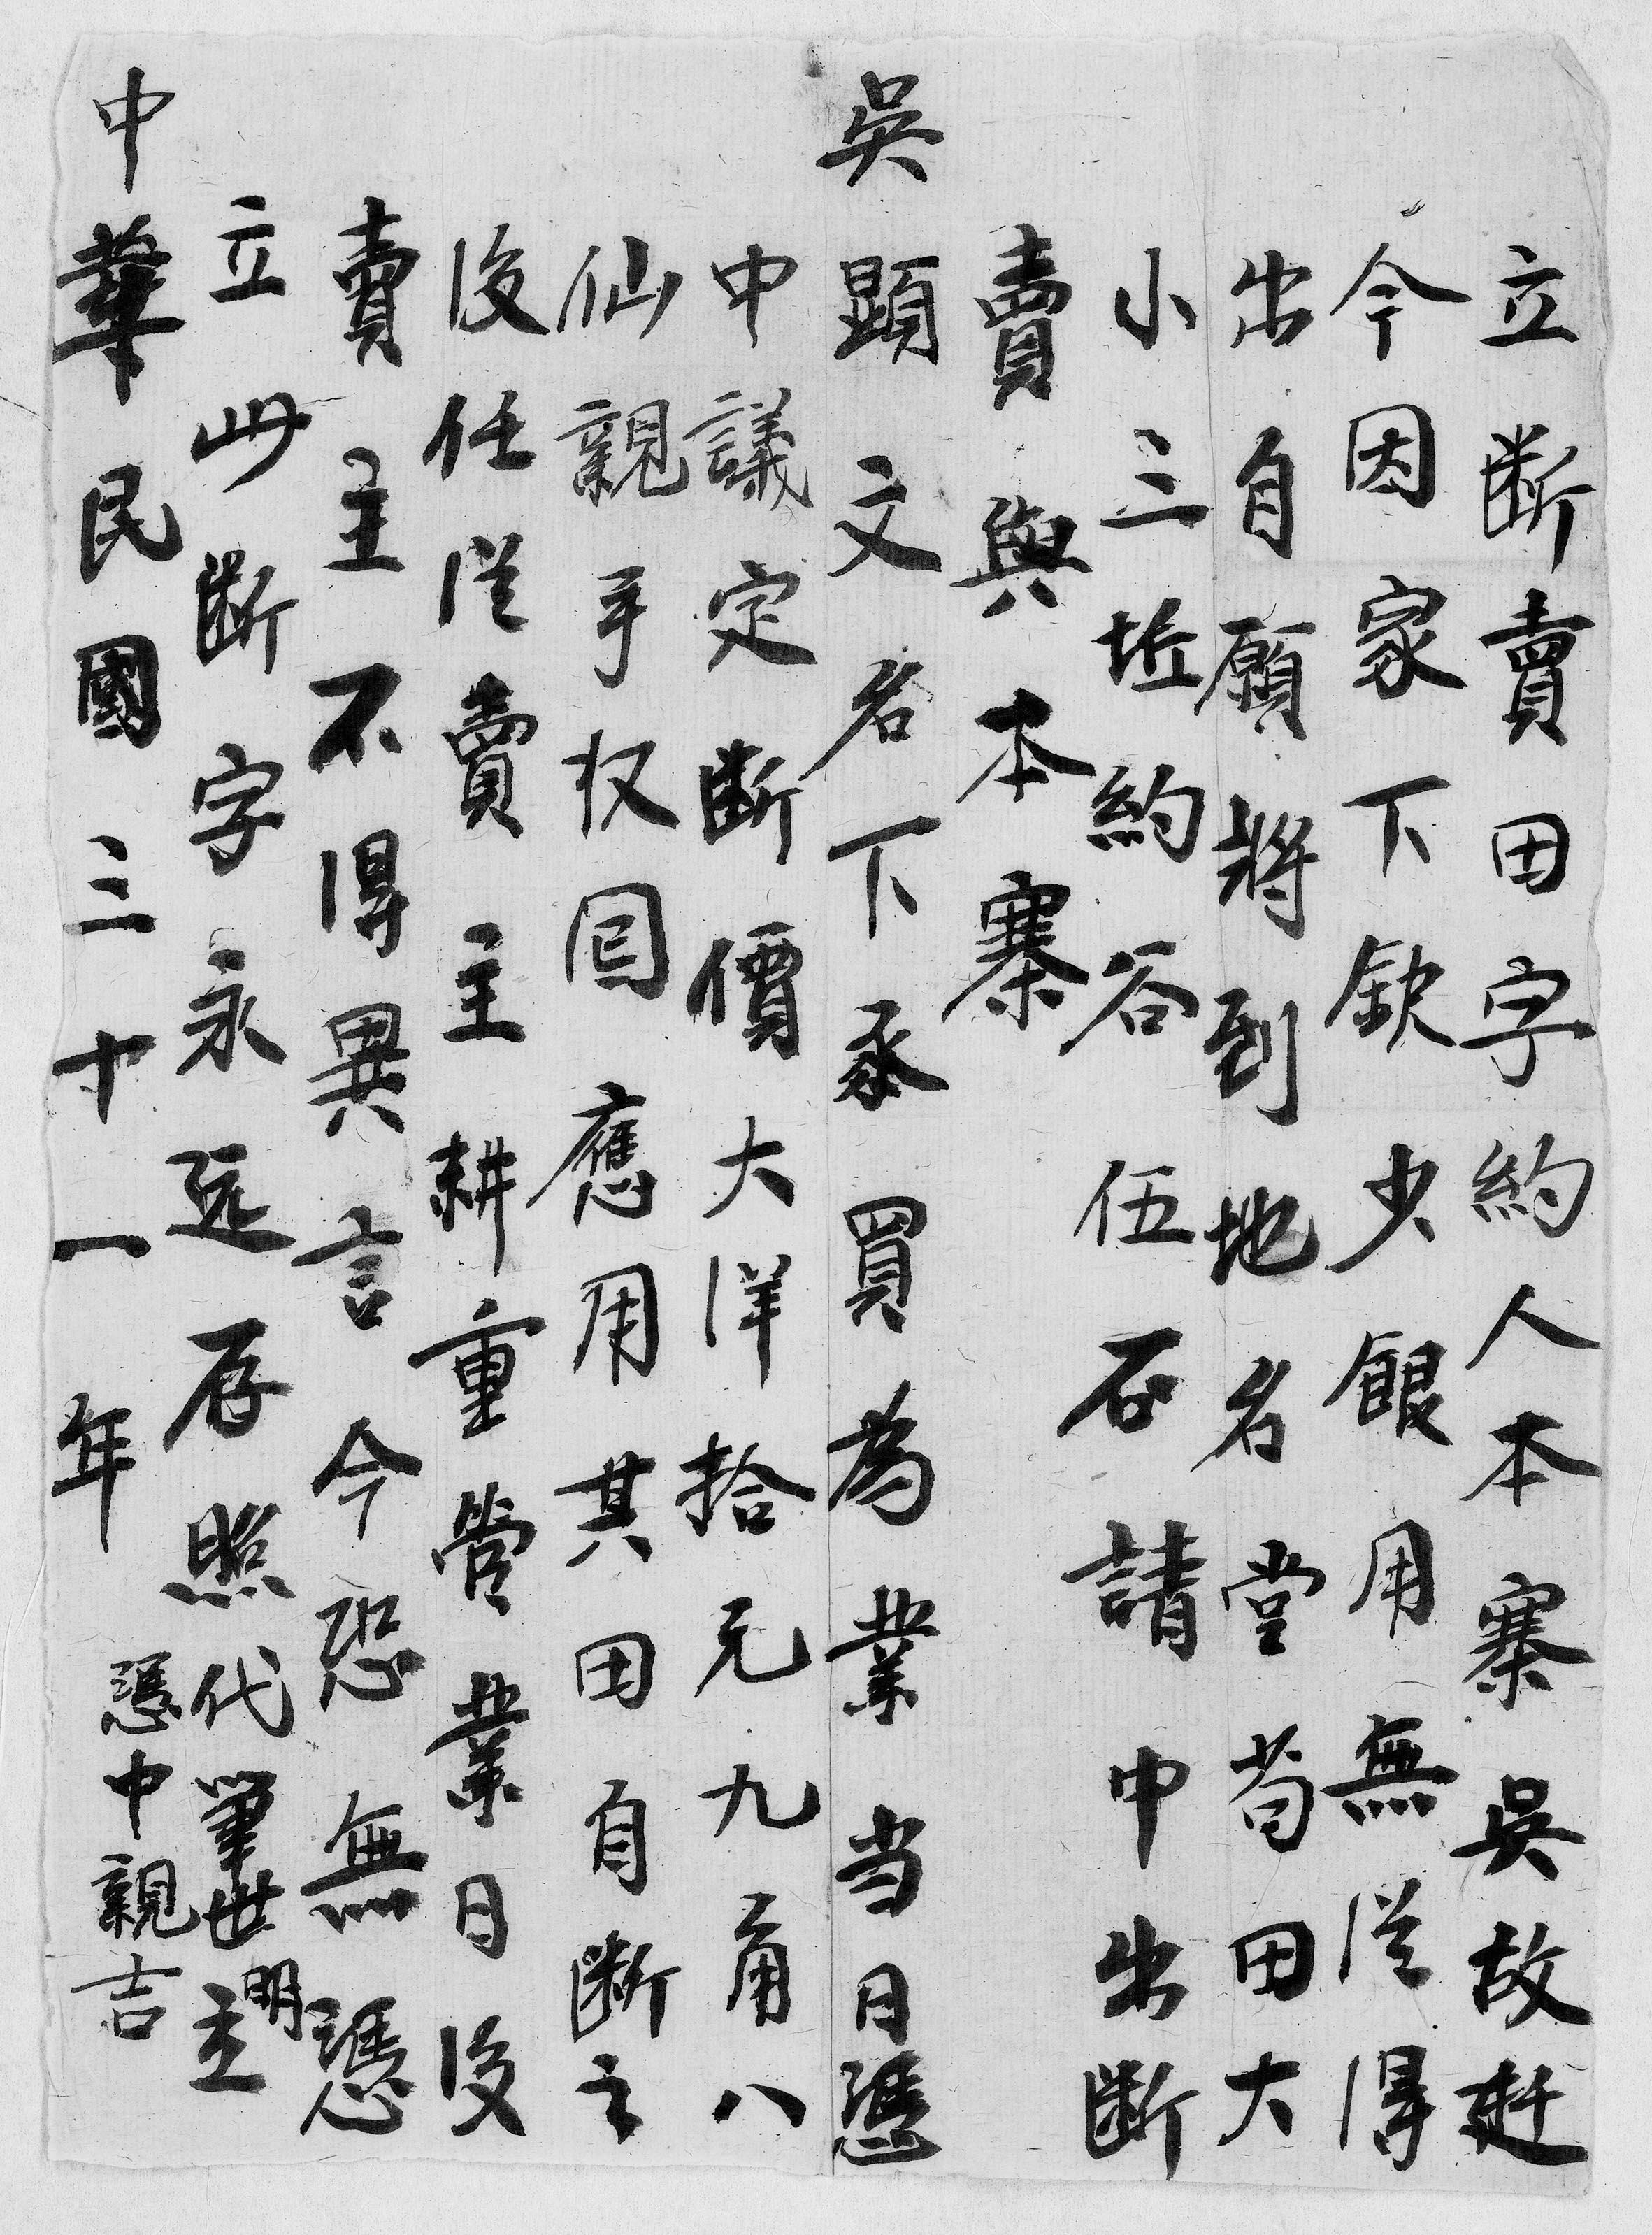 立断賣田字約人本寨吳故赶
今因家下欽少銀用無從得
出自願將到地名堂茍田大
小三坵約谷伍石請中出断
賣與本寨
吳顕文名下承買為業当日憑
中議定断價大洋拾元九角八
仙親手收回應用其田自断之
後任從賣主耕重管業日後
賣主不得異言今恐無憑
立此断字永远存照代筆世明主
中華民國三十一年憑中親吉